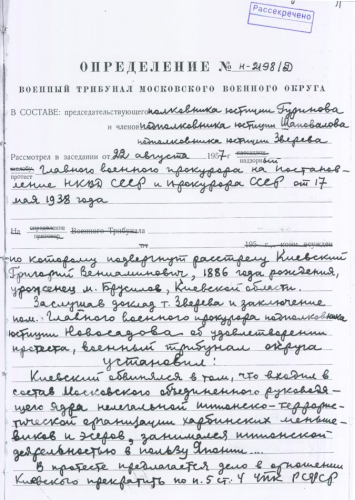 Рассекречено
ОПРЕДЕЛЕНИЕ № н-2198/
ВОЕННЫЙ ТРИБУНАЛ МОСКОВСКОГО ВОЕННОГО ОКРУГА
В СОСТАВЕ: председательствующего полковника юстиции Гуринова
и членов подполковника юстиции Шаповалова
подполковника юстиции Зверева
Рассмотрел в заседании от 22 августа 1957 г.
надзорный
протест Главного военного прокурора на постанов-
ление НКВД СССР и Прокурора СССР от 17
мая 1938 года
На Военного Трибунала
195 г., коим осужден
по которому подвергнут расстрелу Киевский
Григорий Вениаминович, 1886 года рождения,
уроженец м. Брусилов, Киевской области.
Заслушав доклад т. Зверева и заключение
пом. Главного военного прокурора подполковника
юстиции Новосадова об удовлетворении
протеста, военный трибунал округа
установил:
Киевский обвинялся в том, что входил в
состав Московского объединенного руководя-
щего ядра нелегальной шпионско-террорис-
тической организации харбинских меньше-
виков и эсеров, занимался шпионской
деятельностью в пользу Японии....
В протесте предлагается дело в отношении
Киевского прекратить по п. 5 ст. 4 УПК РСФСР